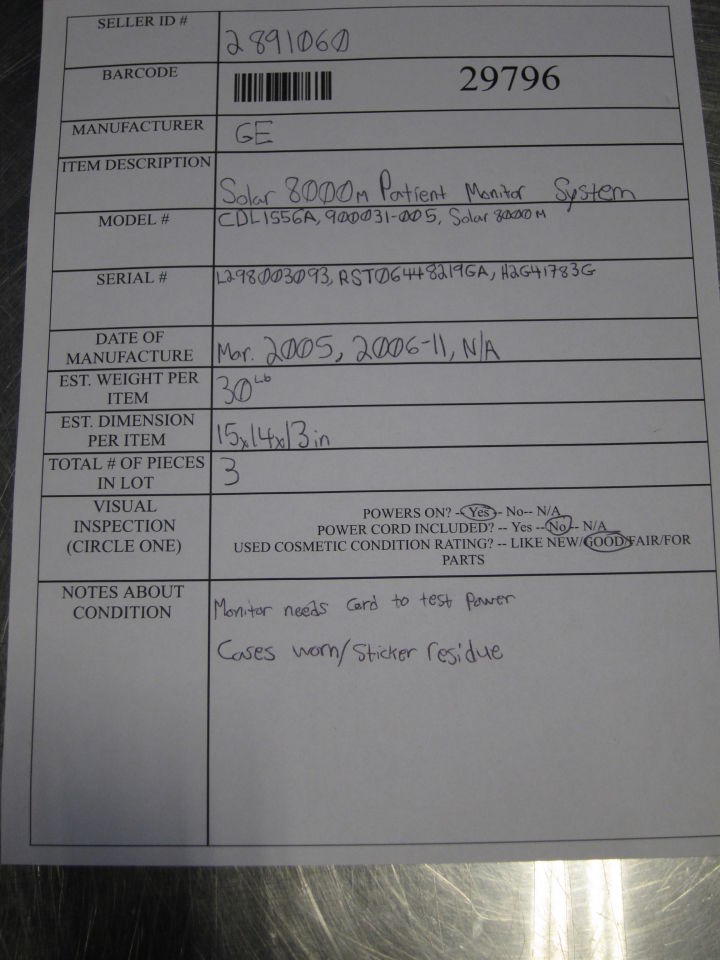 SELLER ID #
2891060
BARCODE
29796
MANUFACTURER
GE
ITEM DESCRIPTION
Solar 8000M Patient Monitor System
MODEL #
CDL1556A, 900031-005, Solar 8000M
SERIAL #
L298003093, RST06448219GA, H2G41783G
DATE OF
MANUFACTURE
Mar. 2005, 2006-11, N/A
EST. WEIGHT PER
ITEM
30 Lb
EST. DIMENSION
PER ITEM
15x14x13 in
TOTAL # OF PIECES
IN LOT
3
VISUAL
INSPECTION
(CIRCLE ONE)
POWERS ON? -- Yes -- No-- N/A
POWER CORD INCLUDED? -- Yes -- No -- N/A
USED COSMETIC CONDITION RATING? -- LIKE NEW/GOOD/FAIR/FOR
PARTS
NOTES ABOUT
CONDITION
Monitor needs Cord to test Power
Cases worn/Sticker residue